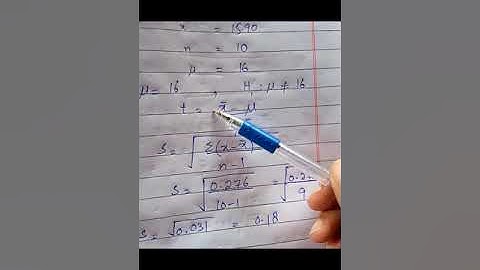 x̄ = 1590
n = 10
μ = 16
μ = 16 , H₁ : μ ≠ 16
t = x̄ μ
S = √ Σ(x-x̄) / n-1
S = √ 0.276 / 10-1 = √ 0.2 / 9
S = √0.031 = 0.18